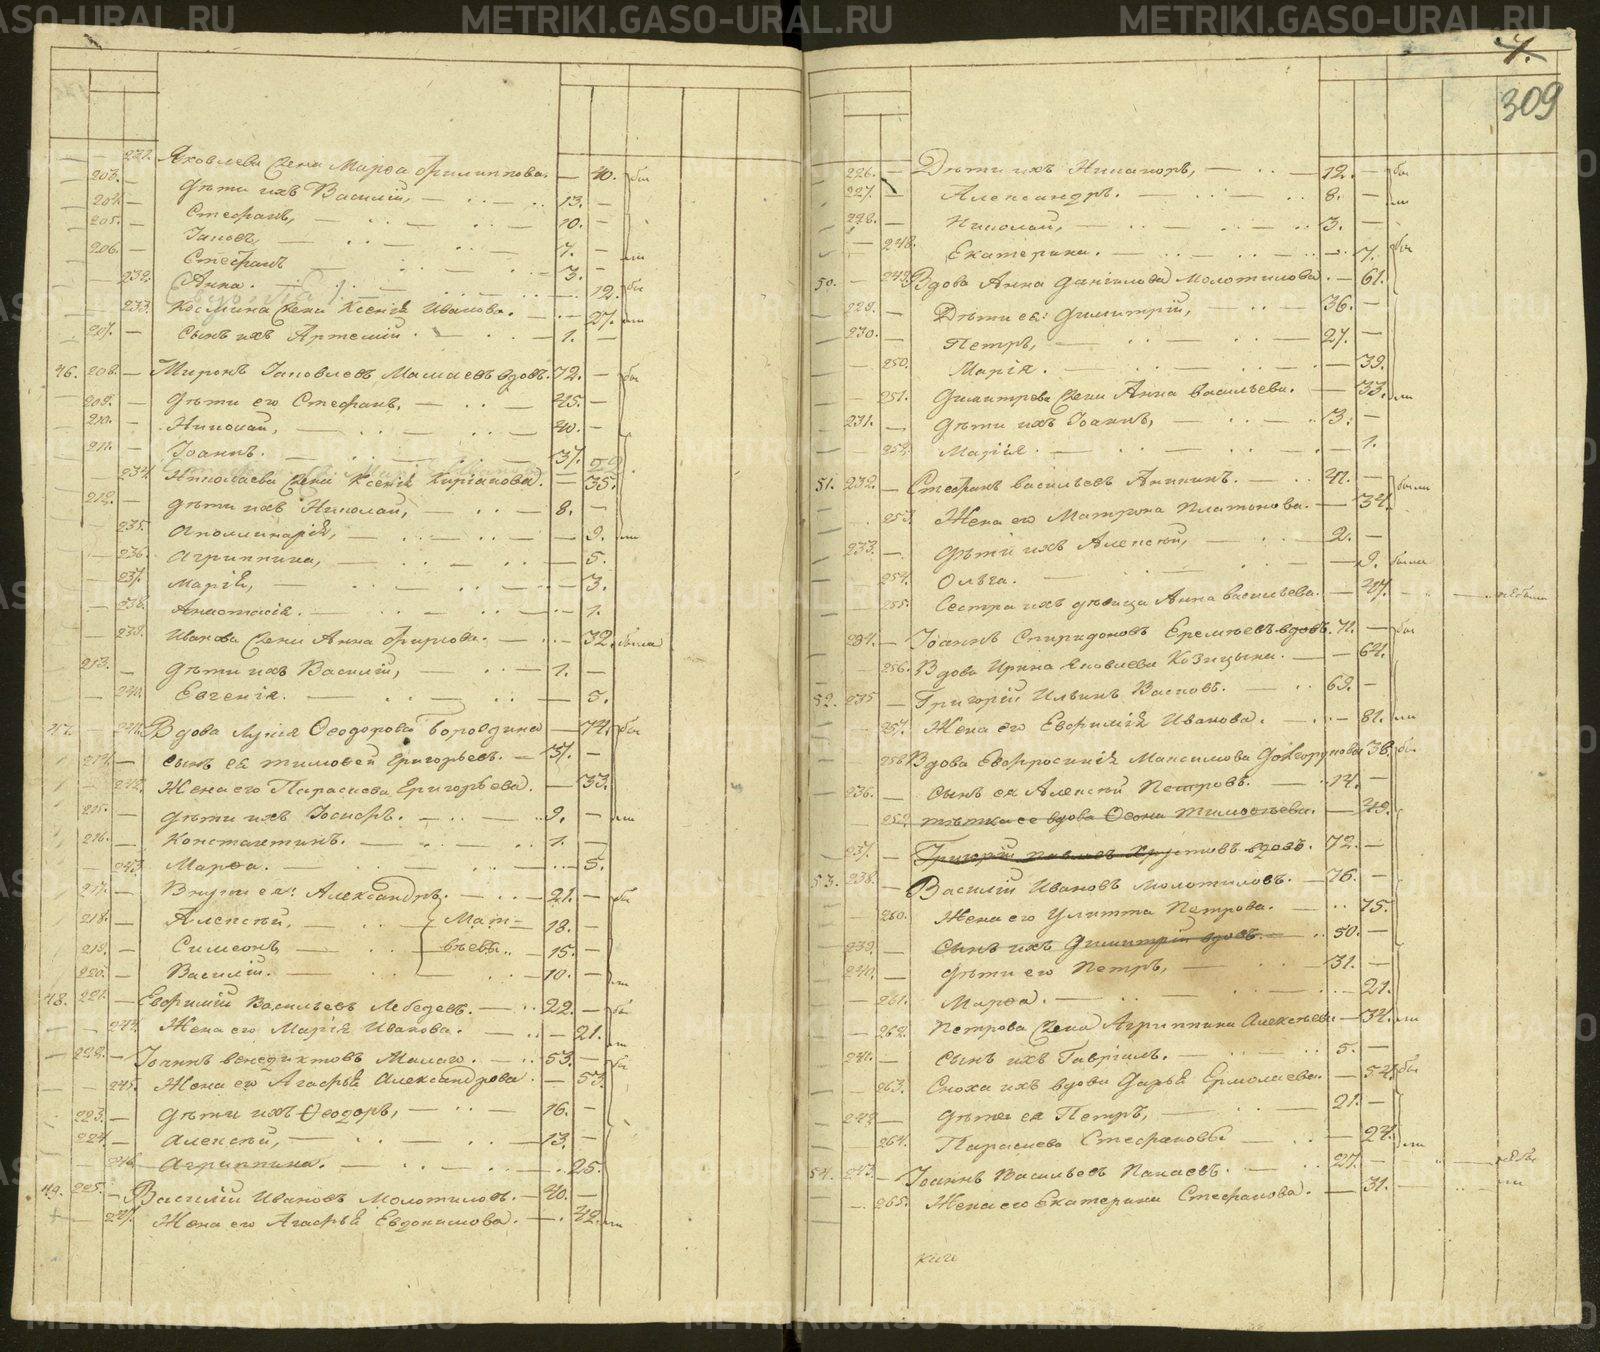 METRIKI.GASO-URAL.RU
231. Яковлева жена Марѳа Филиппова. — 40. бы
203. — Дѣти ихъ Василій, — 13. —
204. — Стефанъ, — 10. —
205. — Іаковъ, — 7. —
206. — Стефанъ — 3. — ли
232. Анна. — 12. бы
233. Космина жена Ксенія Иванова. — 27. ли
207. — Сынъ ихъ Артемій — 1. —
46. 208. — Миронъ Іаковлевъ Мамаевъ вдовъ. 72. — бы
209. — Дѣти его Стефанъ, — 45. —
210. — Николай, — 40. —
211. — Іоаннъ. — 37.
234. Николаева жена Ксенія Кирианова. — 35.
212. — Дѣти ихъ Николай, — 8. —
235. Аполлинарія, — 9. ли
236. Агриппина, — 5.
237. Марія, — 3.
238. Анастасія. — 1.
239. Иванова жена Анна Фирсова. — 32. была
213. — Дѣти ихъ Василій, — 1. —
240. Евгенія. — 5.
47. — 241. Вдова Лукія Ѳеодорова Бороздина — 74. бы
214. — Сынъ ея Тимоѳей Григорьевъ. — 37. —
242. Жена его Параскева Григорьева. — 33.
215. — Дѣти ихъ Іосифъ. — 9. — ли
216. — Константинъ. — 1. —
243. Марѳа. — 5.
217. — Внуки ея: Александръ, — 21. — бы
218. — Алексѣй, — Мат= 18. —
219. — Симеонъ, — вѣевы. 15. —
220. — Василій. — 10. — ли
48. 221. — Евфимій Васильевъ Лебедевъ. — 22. — бы
244. Жена его Марія Иванова. — 21. ли
222. — Іоаннъ Венедиктовъ Малаго. — 53. — бы
245. Жена его Агафья Александрова. — 53.
223. — Дѣти ихъ Ѳеодоръ, — 16. —
224. — Алексѣй, — 13. —
246. Агриппина. — 25.
49. 225. — Василій Ивановъ Молотиловъ. — 40. —
247. Жена его Агафья Евдокимова. — 42. ли
7.
309
226. — Дѣти ихъ Никаноръ, — 12. — бы
227. — Александръ. — 8. — ли
228. — Николай, — 3. —
248. Екатерина. — 7. бы
50. — 249. Вдова Анна Даниилова Молотилова. — 61.
229. — Дѣти ея: Димитрій, — 36. —
230. — Петръ, — 27. —
250. Марія. — 39.
251. Димитрова жена Анна Васильева. — 33. ли
231. — Дѣти ихъ Іоаннъ, — 3. —
252. Марія. — 1.
51. 232. — Стефанъ Васильевъ Аникинъ. — 41. — были
253. Жена его Матрона Платонова. — 34.
233. — Дѣти ихъ Алексѣй, — 2. —
254. Ольга. — 9. были
255. Сестра ихъ дѣвица Анна Васильева. — 27. — не были
234. — Іоаннъ Спиридоновъ Еремѣевъ вдовъ. 71. — бы
256. Вдова Ирина Яковлева Козицына. — 64.
52. 235 — Григорій Ильинъ Васковъ. — 69. —
257. Жена его Евфимія Иванова. — 81. ли
258. Вдова Евфросинія Максимова Долгорукова 38. бы
236. — Сынъ ея Алексѣй Петровъ. — 14. —
259. Тѣтка ее вдова Ѳеона Тимоѳѣева. — 49.
237. — Григорій Павловъ Хрустовъ вдовъ. 72. —
53. 238. — Василій Ивановъ Молотиловъ. — 76. —
260. Жена его Улитта Петрова. — 75.
239. — Сынъ ихъ Димитрій вдовъ. — 50. —
240. — Дѣти его Петръ, — 31. —
261. Марѳа. — 21.
262. Петрова жена Агриппина Алексѣева — 34. ли
241. — Сынъ ихъ Гавріилъ. — 5. —
263. Сноха ихъ вдова Дарья Ермолаева. — 54. бы
242. — Дѣти ея Петръ, — 21. —
264. Параскева Стефановы — 24. ли
54. 243. — Іоаннъ Васильевъ Папаевъ. — 27. — не бы
265. Жена его Екатерина Стефанова. — 31. — ли